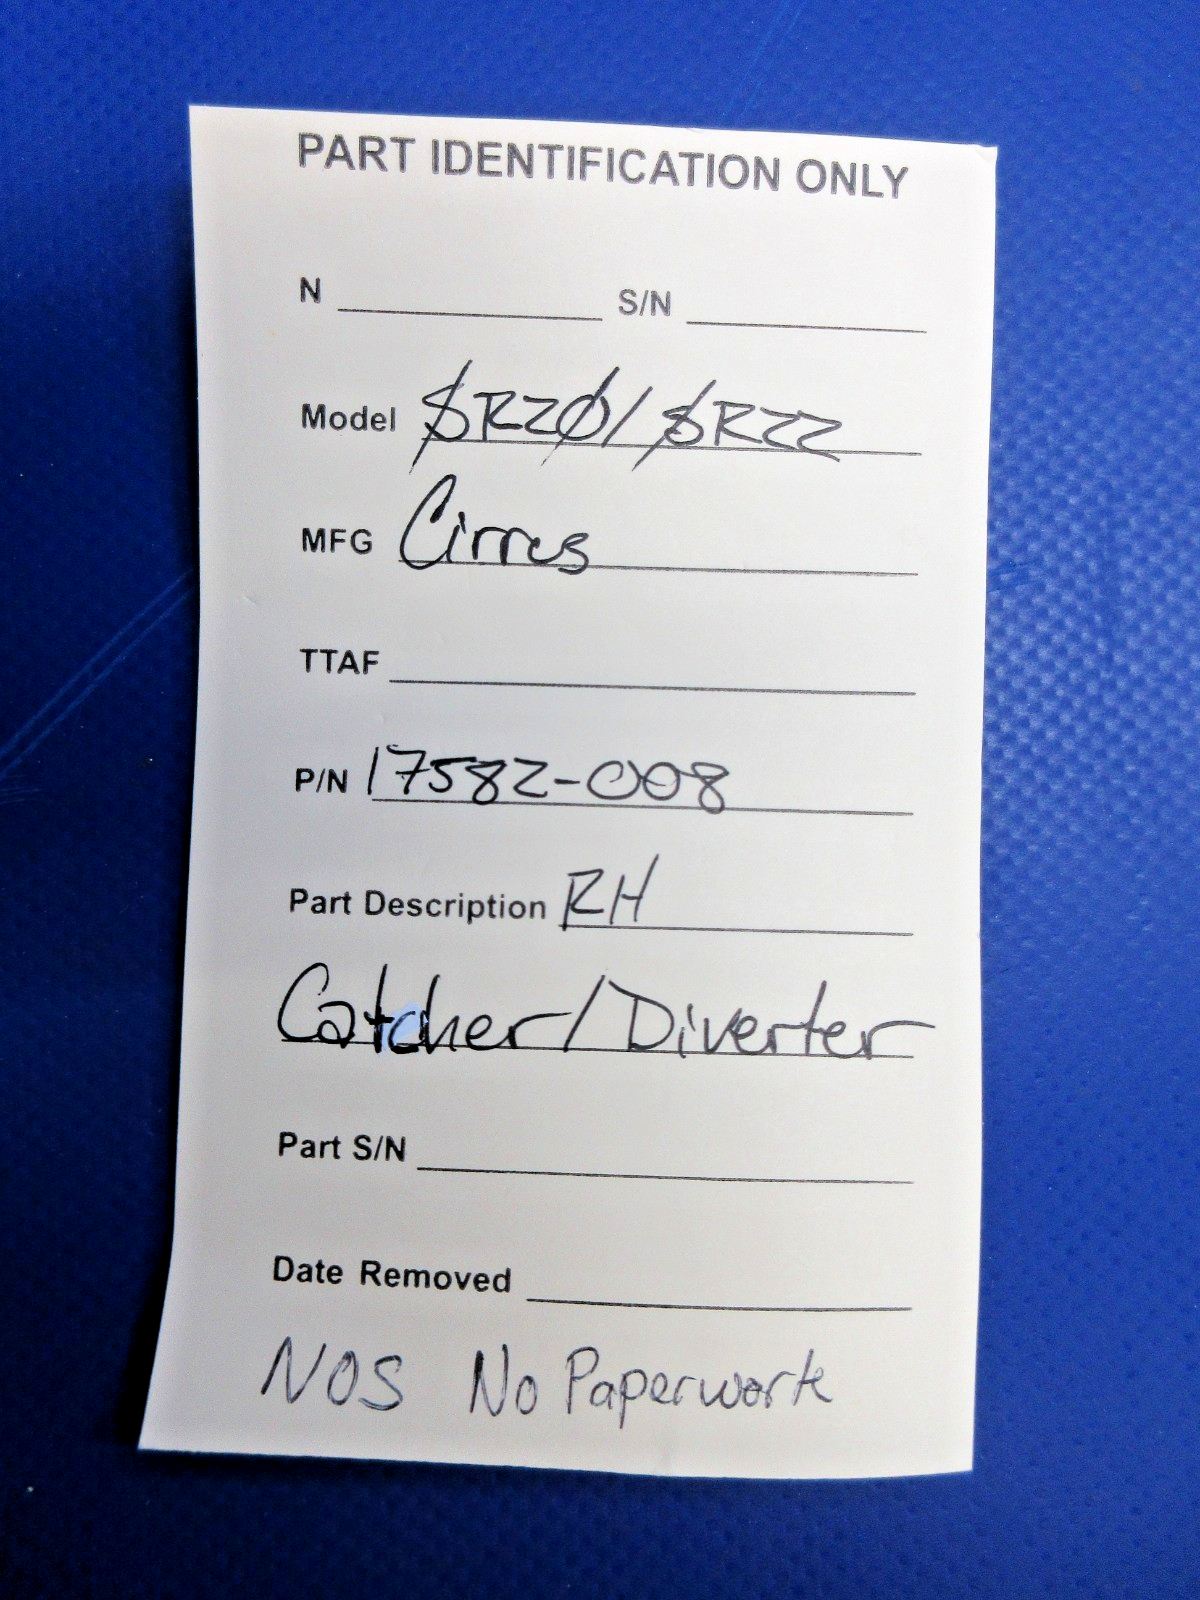 PART IDENTIFICATION ONLY
N S/N
Model SR20/SR22
MFG Cirrus
TTAF
P/N 17582-008
Part Description RH
Catcher/Diverter
Part S/N
Date Removed
NOS No Paperwork